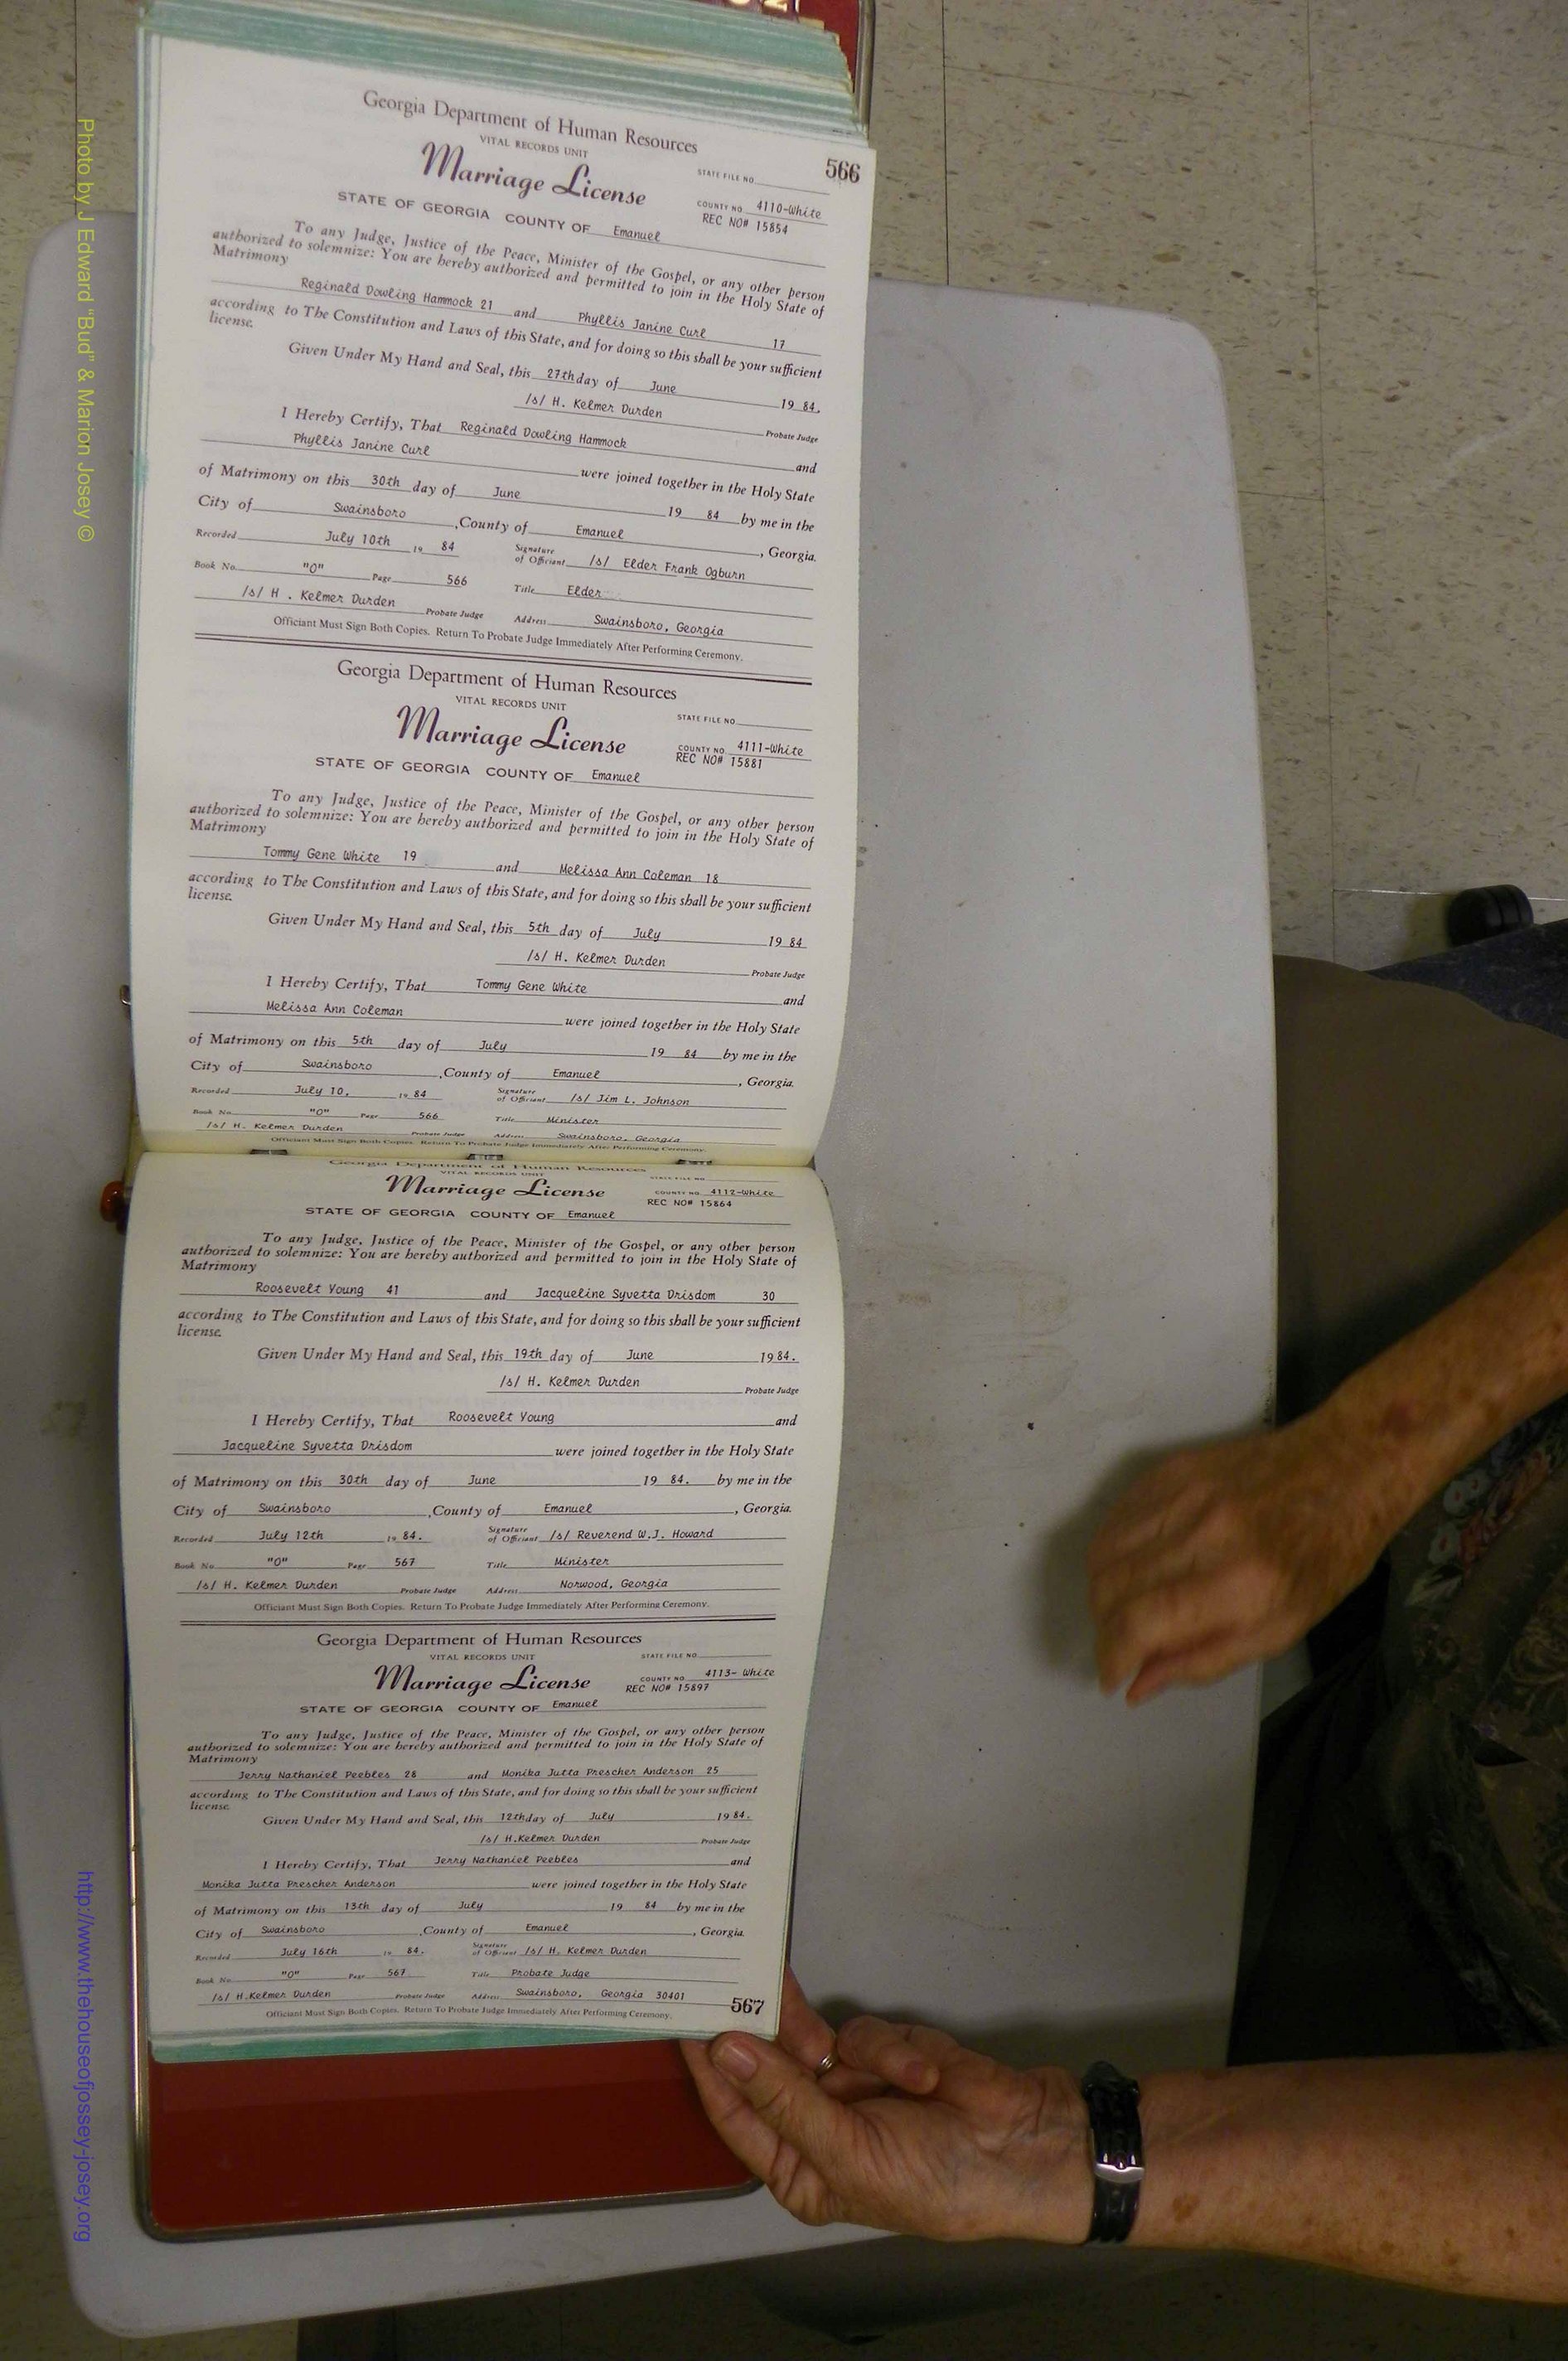 Georgia Department of Human Resources
VITAL RECORDS UNIT
566
Marriage License
STATE FILE NO.
COUNTY NO. 4110-White
REC NO# 15854
STATE OF GEORGIA COUNTY OF Emanuel
To any Judge, Justice of the Peace, Minister of the Gospel, or any other person
authorized to solemnize: You are hereby authorized and permitted to join in the Holy State of
Matrimony
Reginald Dowling Hammock 21 and Phyllis Janine Curl 17
according to The Constitution and Laws of this State, and for doing so this shall be your sufficient
license.
Given Under My Hand and Seal, this 27th day of June 19 84.
/s/ H. Kelmer Durden
Probate Judge
I Hereby Certify, That Reginald Dowling Hammock and
Phyllis Janine Curl were joined together in the Holy State
of Matrimony on this 30th day of June 19 84 by me in the
City of Swainsboro, County of Emanuel, Georgia.
Recorded July 10th 19 84 Signature of Officiant /s/ Elder Frank Ogburn
Book No. "O" Page 566 Title Elder
/s/ H . Kelmer Durden Probate Judge Address Swainsboro, Georgia
Officiant Must Sign Both Copies. Return To Probate Judge Immediately After Performing Ceremony.
Georgia Department of Human Resources
VITAL RECORDS UNIT
STATE FILE NO.
Marriage License
COUNTY NO. 4111-White
REC NO# 15881
STATE OF GEORGIA COUNTY OF Emanuel
To any Judge, Justice of the Peace, Minister of the Gospel, or any other person
authorized to solemnize: You are hereby authorized and permitted to join in the Holy State of
Matrimony
Tommy Gene White 19 and Melissa Ann Coleman 18
according to The Constitution and Laws of this State, and for doing so this shall be your sufficient
license.
Given Under My Hand and Seal, this 5th day of July 19 84
/s/ H. Kelmer Durden
Probate Judge
I Hereby Certify, That Tommy Gene White and
Melissa Ann Coleman were joined together in the Holy State
of Matrimony on this 5th day of July 19 84 by me in the
City of Swainsboro, County of Emanuel, Georgia.
Recorded July 10, 19 84 Signature of Officiant /s/ Jim L. Johnson
Book No. "O" Page 566 Title Minister
/s/ H. Kelmer Durden Probate Judge Address Swainsboro, Georgia
Officiant Must Sign Both Copies. Return To Probate Judge Immediately After Performing Ceremony.
Georgia Department of Human Resources
VITAL RECORDS UNIT
STATE FILE NO.
Marriage License
COUNTY NO. 4112-White
REC NO# 15864
STATE OF GEORGIA COUNTY OF Emanuel
To any Judge, Justice of the Peace, Minister of the Gospel, or any other person
authorized to solemnize: You are hereby authorized and permitted to join in the Holy State of
Matrimony
Roosevelt Young 41 and Jacqueline Syvetta Drisdom 30
according to The Constitution and Laws of this State, and for doing so this shall be your sufficient
license.
Given Under My Hand and Seal, this 19th day of June 19 84.
/s/ H. Kelmer Durden
Probate Judge
I Hereby Certify, That Roosevelt Young and
Jacqueline Syvetta Drisdom were joined together in the Holy State
of Matrimony on this 30th day of June 19 84. by me in the
City of Swainsboro, County of Emanuel, Georgia.
Recorded July 12th 19 84. Signature of Officiant /s/ Reverend W.J. Howard
Book No. "O" Page 567 Title Minister
/s/ H. Kelmer Durden Probate Judge Address Norwood, Georgia
Officiant Must Sign Both Copies. Return To Probate Judge Immediately After Performing Ceremony.
Georgia Department of Human Resources
VITAL RECORDS UNIT
STATE FILE NO.
Marriage License
COUNTY NO. 4113- White
REC NO# 15897
STATE OF GEORGIA COUNTY OF Emanuel
To any Judge, Justice of the Peace, Minister of the Gospel, or any other person
authorized to solemnize: You are hereby authorized and permitted to join in the Holy State of
Matrimony
Jerry Nathaniel Peebles 28 and Monika Jutta Prescher Anderson 25
according to The Constitution and Laws of this State, and for doing so this shall be your sufficient
license.
Given Under My Hand and Seal, this 12th day of July 19 84.
/s/ H.Kelmer Durden
Probate Judge
I Hereby Certify, That Jerry Nathaniel Peebles and
Monika Jutta Prescher Anderson were joined together in the Holy State
of Matrimony on this 13th day of July 19 84 by me in the
City of Swainsboro, County of Emanuel, Georgia.
Recorded July 16th 19 84. Signature of Officiant /s/ H. Kelmer Durden
Book No. "O" Page 567 Title Probate Judge
/s/ H.Kelmer Durden Probate Judge Address Swainsboro, Georgia 30401
Officiant Must Sign Both Copies. Return To Probate Judge Immediately After Performing Ceremony.
567
Photo by J Edward "Bud" & Marion Josey ©
http://www.thehouseofjossey-josey.org